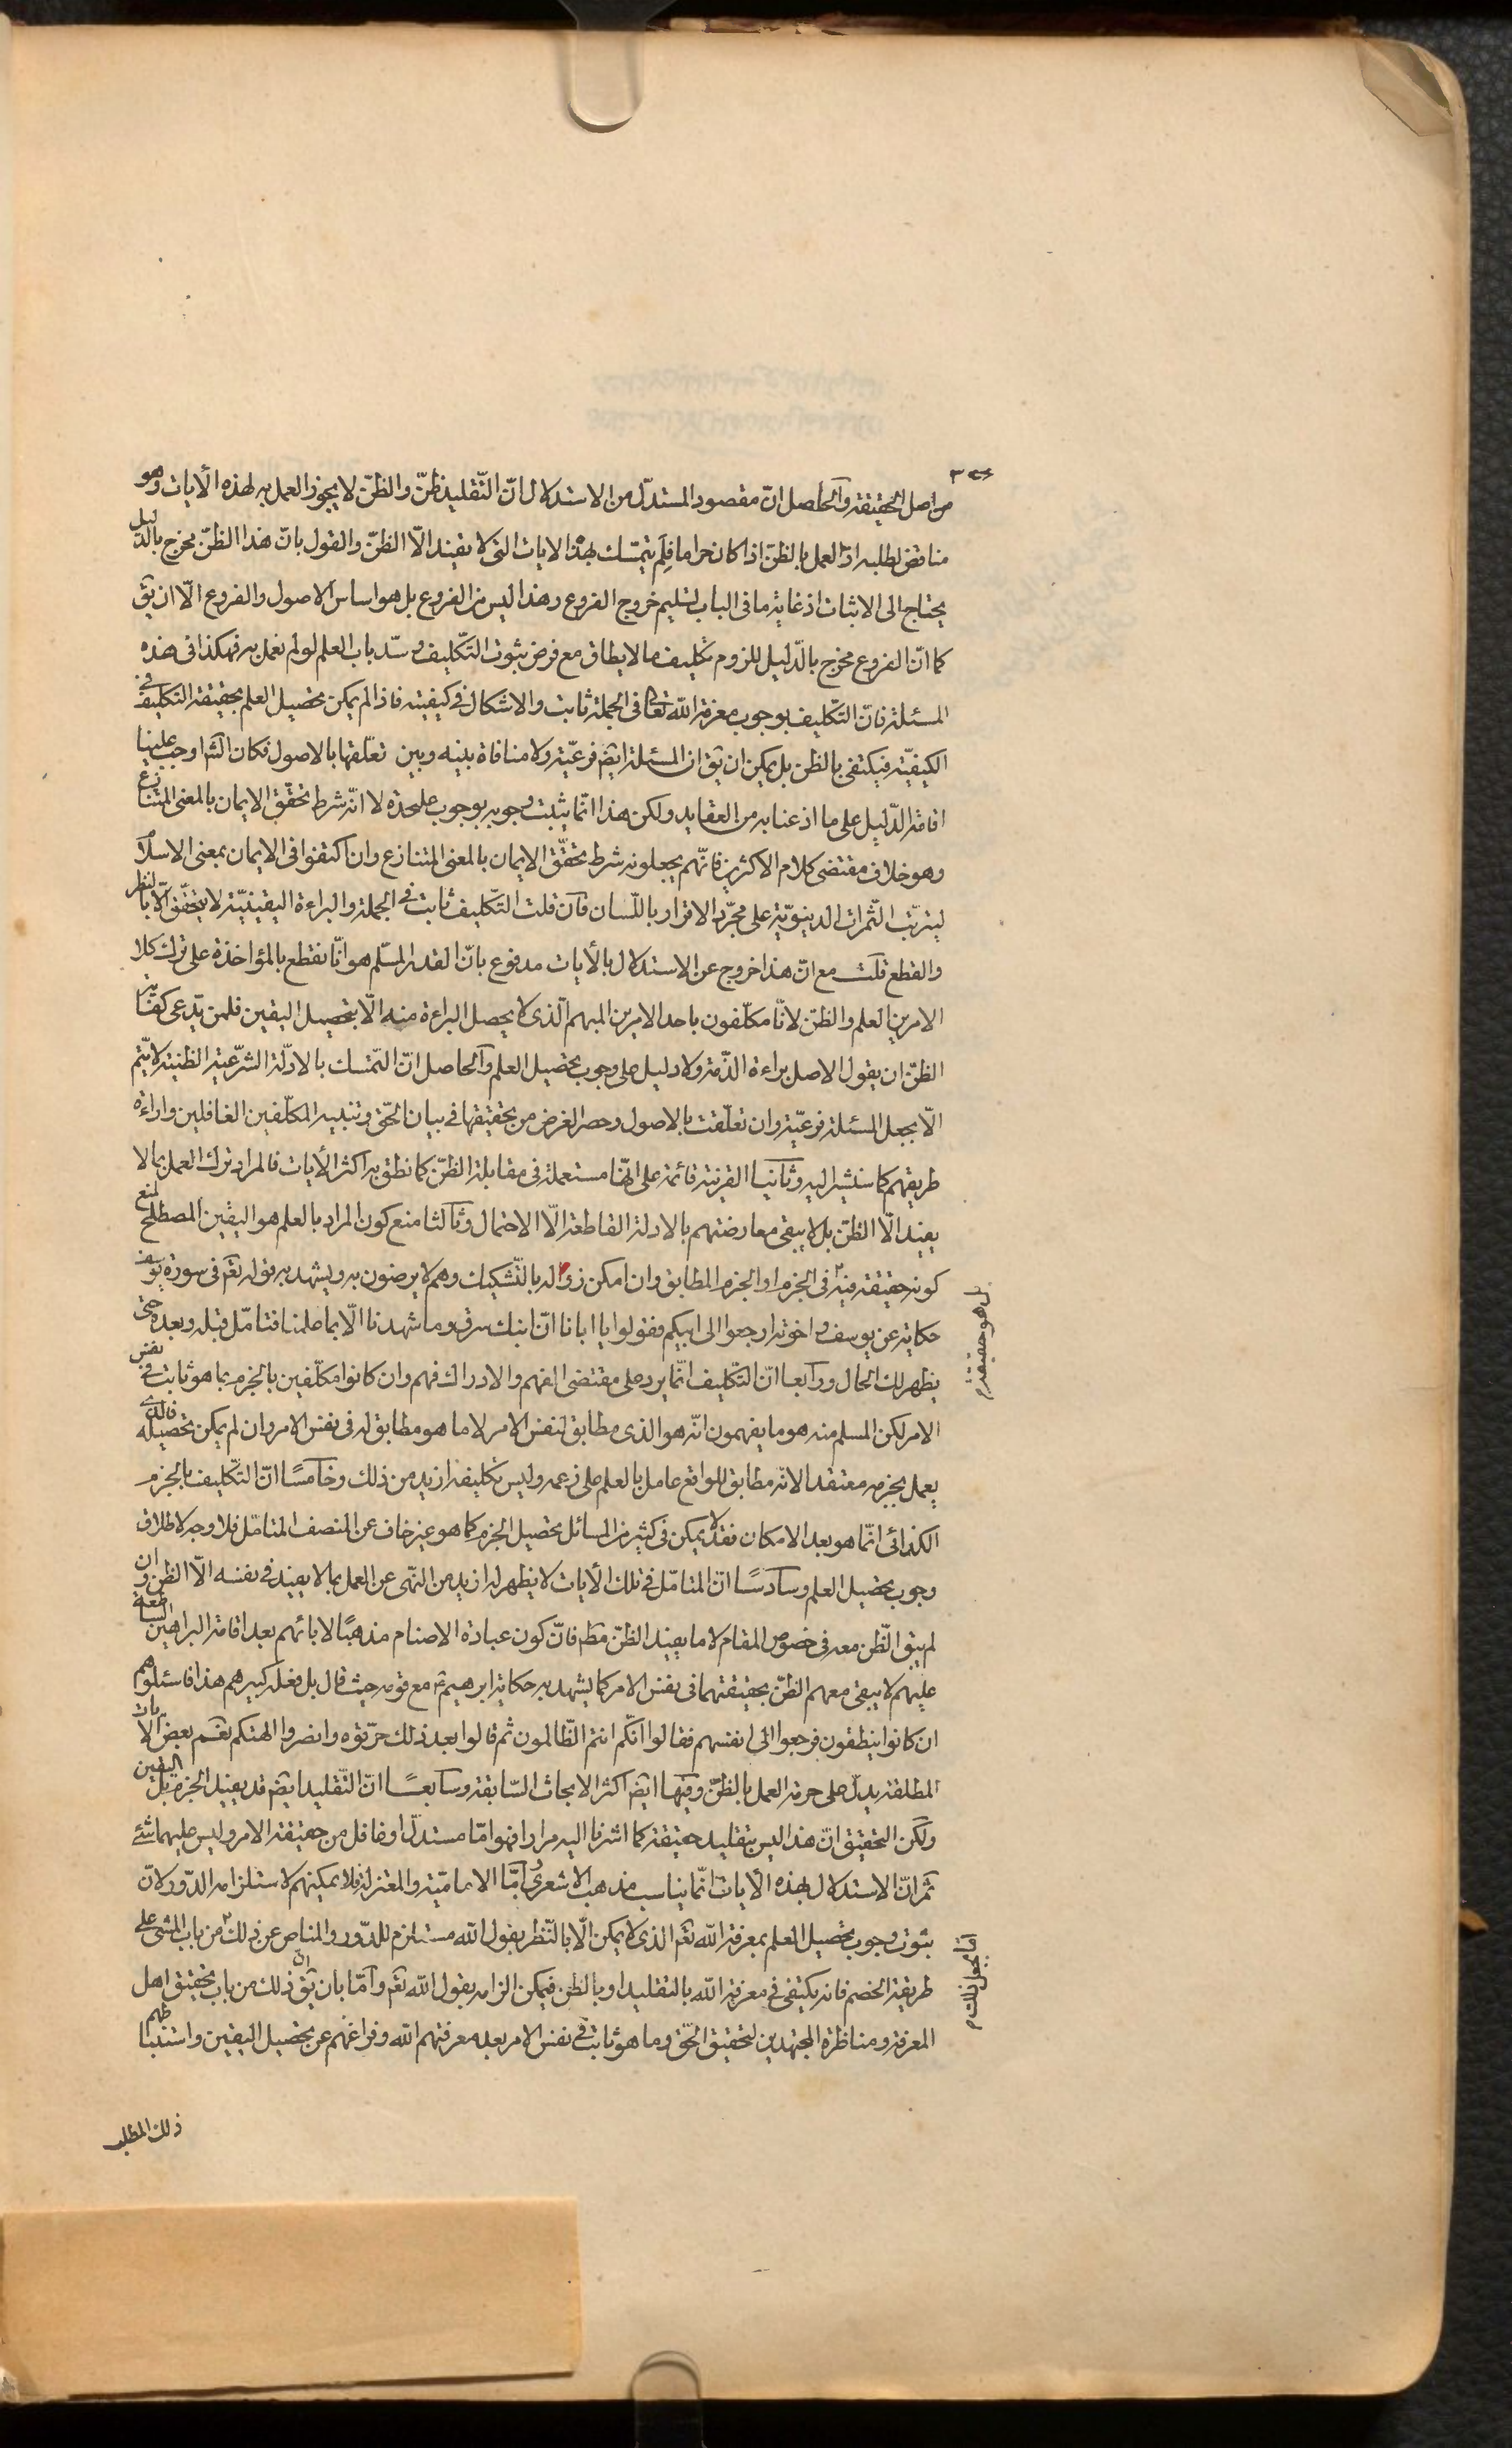 من اصل الحقيقة والحاصل ان مقصود المستدل من الاستدلال ان التقليد ظن والظن لا يجوز العمل به لهذه الايات وهو
مناقض لطلبه اذ العمل بالظن اذا كان حراما فلم يتمسك بهذه الايات التى لا يفيد الا الظن والقول بان هذا الظن مخرج بالدليل
يحتاج الى الاثبات اذ غاية ما فى الباب تسليم خروج الفروع وهذا ليس من الفروع بل هو اساس الاصول والفروع الا ان يق
كما ان الفروع مخرج بالدليل للزوم تكليف ما لا يطاق مع فرض ثبوت التكليف وسد باب العلم لو لم نعمل به فهكذا فى هذه
المسئلة فان التكليف بوجوب معرفة الله تعالى فى الجملة ثابت والاشكال فى كيفيته فاذا لم يمكن تحصيل العلم بحقيقة التكليف فى
الكيفية فيكتفى بالظن بل يمكن ان يق ان المسئلة ايضا فرعية ولا منافاة بينه وبين تعلقها بالاصول فكان الله اوجب علينا
اقامة الدليل على ما اذعنا به من العقايد ولكن هذا انما يثبت وجوبه بوجوب عليحدة لا انه شرط تحقق الايمان بالمعنى المتنازع
وهو خلاف مقتضى كلام الاكثرين فانهم يجعلونه شرط تحقق الايمان بالمعنى المتنازع وان اكتفوا فى الايمان بمعنى الاسلام
ليترتب الثمرات الدينوية على مجرد الاقرار باللسان فان قلت التكليف ثابت فى الجملة والبراءة اليقينية لا يتحقق الا بالنظر
والقطع قلت مع ان هذا خروج عن الاستدلال بالايات مدفوع بان القدر المسلم هو انا نقطع بالمؤاخذة على ترك كلا
الامرين العلم والظن لا انا مكلفون باحد الامرين المبهم الذى لا يحصل البراءة منه الا بتحصيل اليقين فلمن يدعى كفاية
الظن ان يقول الاصل براءة الذمة ولا دليل على وجوب تحصيل العلم والحاصل ان التمسك بالادلة الشرعية الظنية لا يتم
الا بجعل المسئلة فرعية وان تعلقت بالاصول وحصر الغرض من تحقيقها فى بيان الحق وتنبيه المكلفين الغافلين واراءة
طريقهم كما سنشير اليه وثانيا القرينة قائمة على انها مستعملة فى مقابلة الظن كما نطق به اكثر الايات فالمراد ترك العمل بما لا
يفيد الا الظن بل لا يبقى معارضتهم بالادلة القاطعة الا الاحتمال وثالثا منع كون المراد بالعلم هو اليقين المصطلح لمنع
كونه حقيقة فيه بل هو حقيقة فى الجزم او الجزم المطابق وان امكن زواله بالتشكيك وهم لا يرضون به ويشهد به قوله تعالى فى سورة يوسف
حكاية عن يوسف واخوته ارجعوا الى ابيكم فقولوا يا ابانا ان ابنك سرق وما شهدنا الا بما علمنا فتامل قبله وبعده حتى
يظهر لك الحال ورابعا ان التكليف انما يرد على مقتضى الفهم والادراك فهم وان كانوا مكلفين بالجزم بما هو ثابت فى نفس
الامر لكن المسلم منه هو ما يفهمون انه هو الذى مطابق لنفس الامر لا ما هو مطابق له فى نفس الامر وان لم يمكن تحصيله فالذى
يعمل بجزمه معتقدا لانه مطابق للواقع عامل بالعلم على زعمه وليس تكليفه ازيد من ذلك وخامسا ان التكليف بالجزم
الكذائى انما هو بعد الامكان فقد لا يمكن فى كثير من المسائل تحصيل الجزم كما هو غير خاف عن المنصف المتامل فلا وجه لاطلاق
وجوب تحصيل العلم وسادسا ان المتامل فى تلك الايات لا يظهر له ازيد من النهى عن العمل بما لا يفيد فى نفسه الا الظن وان
لم يبق الظن معه فى خصوص المقام لا ما يفيد الظن مطم فان كون عبادة الاصنام مذهبا لابائهم بعد اقامة البراهين الساطعة
عليهم لا يبقى معهم الظن بحقيقتهما فى نفس الامر كما يشهد به حكاية ابرهيم ع مع قومه حيث قال بل فعله كبيرهم هذا فاسئلوهم
ان كانوا ينطقون فرجعوا الى انفسهم فقالوا انكم انتم الظالمون ثم قالوا بعد ذلك حرقوه وانصروا الهتكم نعم بعض الايات
المطلقة يدل على حرمة العمل بالظن وفيها ايضا اكثر الابحاث السابقة وسابعا ان التقليد ايضا قد يفيد الجزم بل اليقين
ولكن التحقيق ان هذا ليس بتقليد حقيقة كما اشرنا اليه مرارا فهو اما مستدل او غافل من حقيقة الامر وليس عليهما شئ
ثم ان الاستدلال بهذه الايات انما يناسب مذهب الاشعرى واما الامامية والمعتزلة فلا يمكنهم لاستلزامه الدور لان
ثبوت وجوب تحصيل العلم بمعرفة الله تعالى الذى لا يمكن الا بالنظر بقول الله مستلزم للدور والمناص عن ذلك اما بجعل ذلك من باب المشى على
طريقة الخصم فانه يكتفى فى معرفة الله بالتقليد او بالظن فيمكن الزامه بقول الله تعالى واما بان يق ان ذلك من باب تحقيق اهل
المعرفة ومناظرة المجتهدين لتحقيق الحق وما هو ثابت فى نفس الامر بعد معرفتهم الله وفراغهم عن تحصيل اليقين واستنباطهم
ذلك المطلب